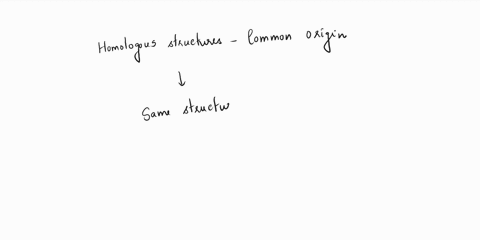 Homologus structures - Common origin
↓
Same structu